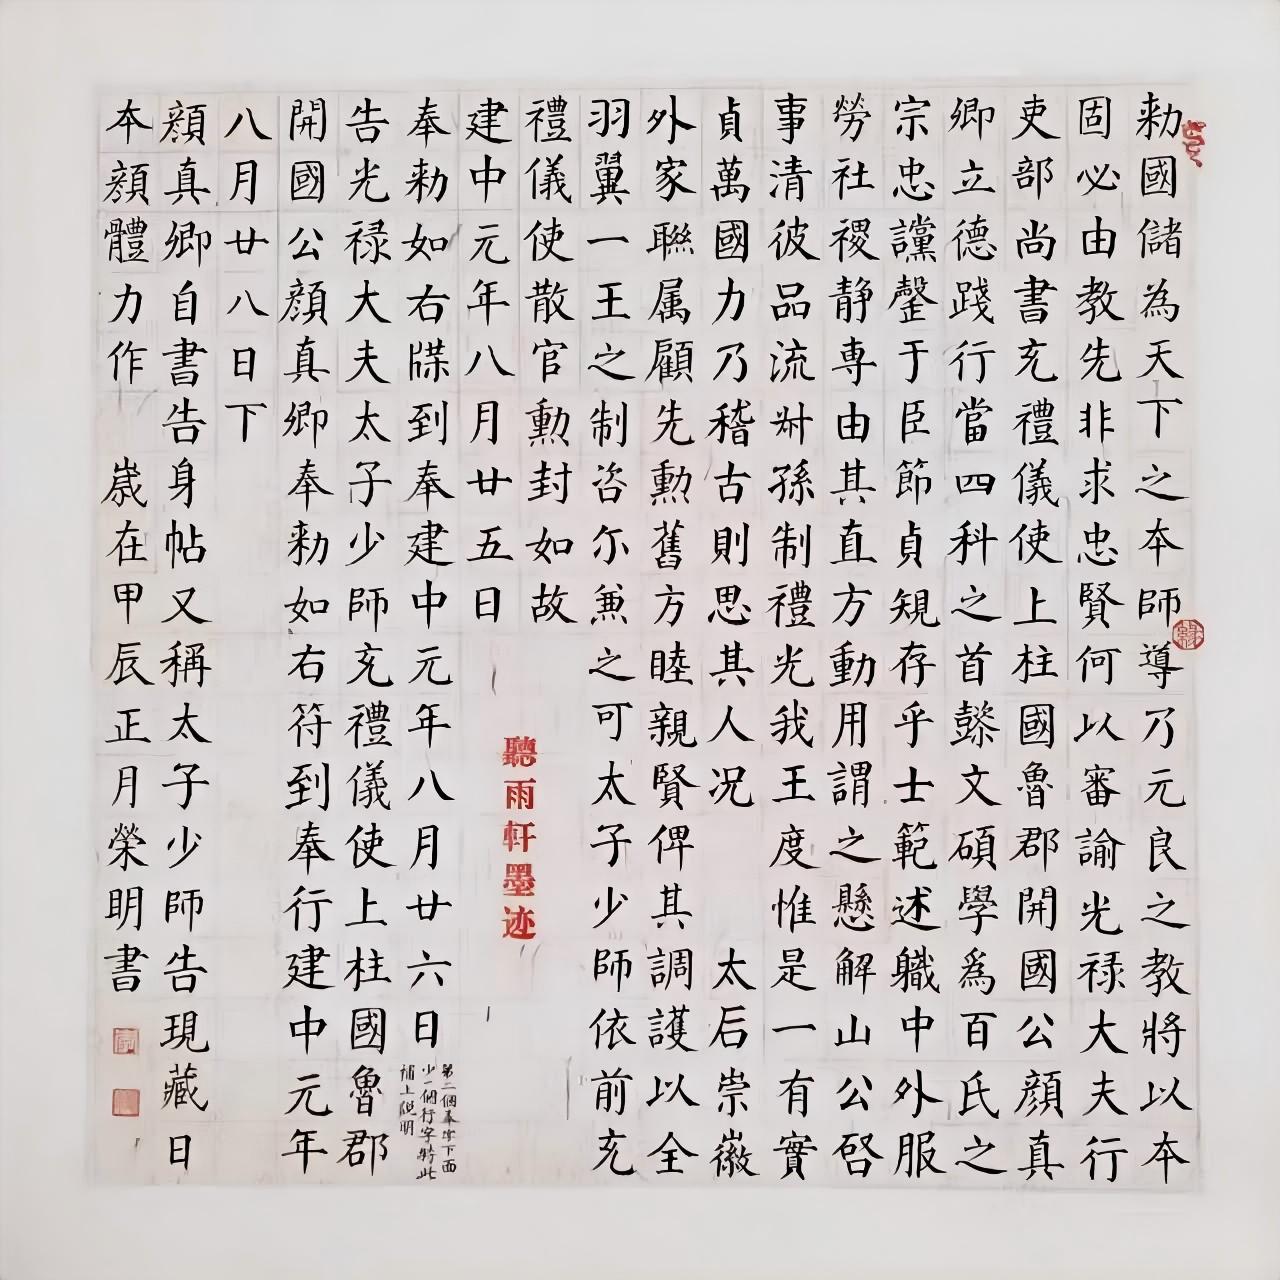 勑國儲為天下之本師導乃元良之教將以本
固必由教先非求忠賢何以審諭光禄大夫行
吏部尚書充禮儀使上柱國魯郡開國公顔真
卿立德踐行當四科之首懿文碩學爲百氏之
宗忠讜罄于臣節貞規存乎士範述職中外服
勞社稷静専由其直方動用謂之懸解山公啓
事清彼品流叔孫制禮光我王度惟是一有實
貞萬國力乃稽古則思其人况 太后崇徽
外家聯属顧先勳舊方睦親賢俾其調護以全
羽翼一王之制咨尔兼之可太子少師依前充
禮儀使散官勳封如故
聽雨軒墨迹
建中元年八月廿五日
奉勑如右牒到奉建中元年八月廿六日
第二個奉字下面
少一個行字特此
補上説明
告光禄大夫太子少師充禮儀使上柱國魯郡
開國公顔真卿奉勑如右符到奉行建中元年
八月廿八日下
顔真卿自書告身帖又稱太子少師告現藏日
本顔體力作 嵗在甲辰正月榮明書